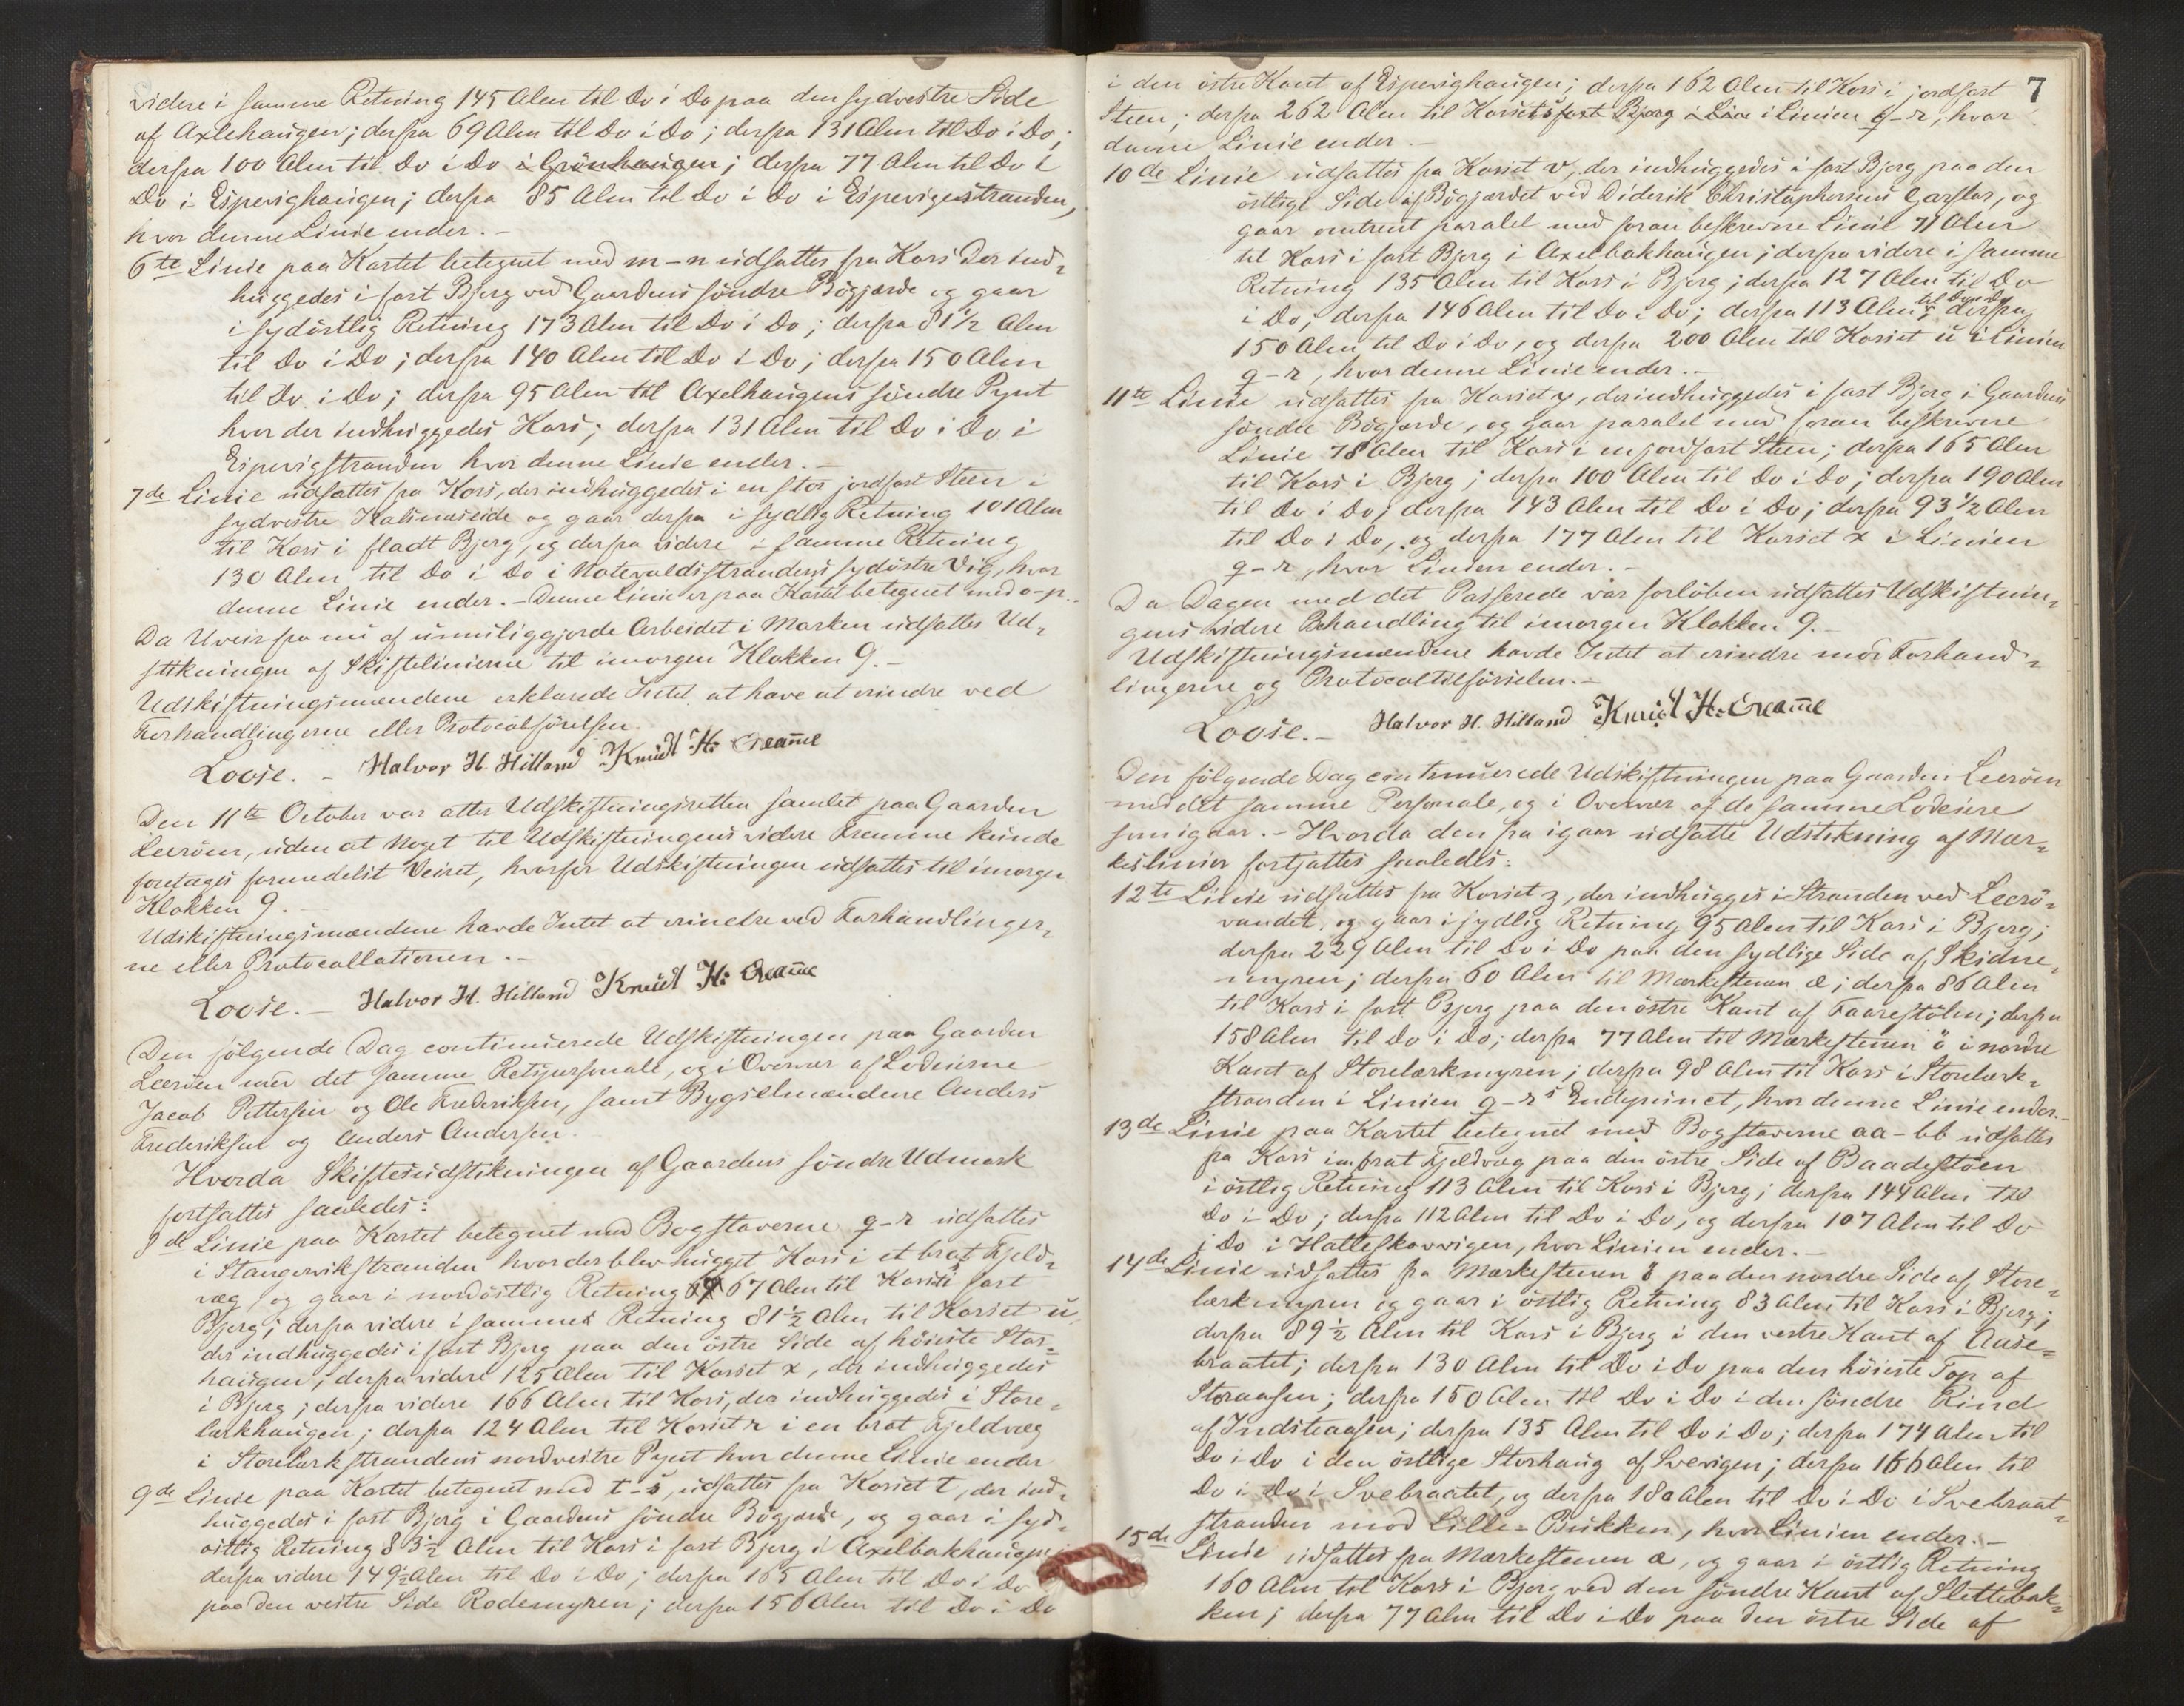 videre i samme Retning 145 Alen til Do i Do paa den sydvestre Side
af Axlehaugen; derfra 69 Alen til Do i Do; derfra 131 Alen til Do i Do;
derfra 100 Alen til Do i Do i Grönhaugen; derfra 77 Alen til Do i
Do i Espevighaugen; derfra 85 Alen til Do i Do i Espevigestranden,
hvor denne Linie ender. –
6te Linie paa Kartet betegnet med m–n udsattes fra Kors der ind-
huggedes i fast Bjerg ved Gaardens söndre Bögjærde og gaar
i sydöstlig Retning 173 Alen til Do i Do; derfra 81½ Alen
til Do i Do; derfra 140 Alen til Do i Do; derfra 150 Alen
til Do i Do; derfra 95 Alen til Axelhaugens söndre Pynt
hvor der indhuggedes Kors; derfra 131 Alen til Do i Do i
Espevigstranden hvor denne Linie ender. –
7de Linie udsattes fra Kors, der indhuggedes i en stor jordfast Steen i
sydvestre Kalsneseide og gaar derfra i sydlig Retning 101 Alen
til Kors i fladt Bjerg, og derfra videre i samme Retning
130 Alen til Do i Do i Notevaldsstrandens sydöstre Vig, hvor
denne Linie ender. – Denne Linie er paa Kartet betegnet med o–p.
Da Uveir fra nu af umuliggjorde Arbeidet i Marken udsattes Ud-
stikningen af Skiftelinierne til imorgen Klokken 9. –
Udskiftningsmændene erklærede Intet at have at erindre ved
Forhandlingerne eller Protocolförelsen.
Loose. – Halvor H. Hilland Knud H:
Den 11te October var atter Udskiftningsretten samlet paa Gaarden
Leeröen, uden at Noget til Udskiftningens videre Fremme kunde
foretages formedelst Veiret, hvorfor Udskiftningen udsattes til imorgen
Klokken 9. –
Udskiftningsmændene havde Intet at erindre ved Forhandlinger-
ne eller Protocollationen. –
Loose. – Halvor H. Hilland Knud H:
Den fölgende Dag continuerede Udskiftningen paa Gaarden
Leeröen med det samme Retspersonale, og i Overvær af Lodeierne
Jacob Pettersen og Ole Frederiksen, samt Bygselmændene Anders
Frederiksen og Anders Andersen.
Hvorda Skiftesudstikningen af Gaardens söndre Udmark
fortsattes saaledes:
8de Linie paa Kartet betegnet med Bogstaverne q–r udsattes
i Stangevikstranden hvor der blev hugget Kors i et brat Fjeld-
væg, og gaar i nordöstlig Retning 67 Alen til Kors i fast
Bjerg; derfra videre i samme Retning 81½ Alen til Korset u
der indhuggedes i fast Bjerg paa den östre Side af höieste Stor-
haugen; derfra videre 125 Alen til Korset x, der indhuggedes
i Bjerg; derfra videre 166 Alen til Kors, der indhuggedes i Store-
lærkhaugen; derfra 124 Alen til Korset r i en brat Fjeldvæg
i Storelærkstrandens nordvestre Pynt hvor denne Linie ender
9de Linie paa Kartet betegnet med t–s, udsattes fra Korset t, der ind-
huggedes i fast Bjerg i Gaardens söndre Bögjærde, og gaar i syd-
östlig Retning 83½ Alen til Kors i fast Bjerg i Axelbakhaugen;
derfra videre 149½ Alen til Do i Do; derfra 165 Alen til Do i Do
paa den vestre Side Rodemyren; derfra 156 Alen til Do i Do
7
i den östre Kant af Espevighaugen; derfra 162 Alen til Kors i jordfast
Steen; derfra 262 Alen til Korset s i fast Bjerg i Linien q–r, hvor
denne Linie ender. –
10de Linie udsattes fra Korset v, der indhuggedes i fast Bjerg paa den
östlige Side af Bögjærdet ved Diderik Christophersens Garflor, og
gaar omtrent paralel med foran beskrevne Linie 71 Alen
til Kors i fast Bjerg i Axelbakhaugen; derfra videre i samme
Retning 135 Alen til Kors i Bjerg; derfra 127 Alen til Do
i Do; derfra 146 Alen til Do i Do; derfra 113 Alen til Do i Do; derfra
150 Alen til Do i Do, og derfra 200 Alen til Korset u i Linien
q–r, hvor denne Linie ender. –
11te Linie udsattes fra Korset y, der indhuggedes i fast Bjerg i Gaardens
söndre Bögjærde, og gaar paralel med foran beskrevne
Linie 78 Alen til Kors i en jordfast Steen; derfra 165 Alen
til Kors i Bjerg; derfra 100 Alen til Do i Do; derfra 190 Alen
til Do i Do; derfra 143 Alen til Do i Do; derfra 93½ Alen
til Do i Do, og derfra 177 Alen til Korset x i Linien
q–r, hvor Linien ender. –
Da Dagen med det Passerede var forlöben udsattes Udskiftnin-
gens videre Behandling til imorgen Klokken 9. –
Udskiftningsmændene havde Intet at erindre mod Forhand-
lingerne og Protocoltilförselen. –
Loose. – Halvor H. Hilland Knud H:
Den fölgende Dag continuerede Udskiftningen paa Gaarden Leeröen
med det samme Personale, og i Overvær af de samme Lodeiere
som igaar. – Hvorda den fra igaar udsatte Udstikning af Mær-
keslinier fortsattes saaledes:
12te Linie udsattes fra Korset z, der indhugges i Stranden ved Leerö-
vandet, og gaar i sydlig Retning 95 Alen til Kors i Bjerg;
derfra 229 Alen til Do i Do paa den sydlige Side af Skidne-
myren; derfra 60 Alen til Mærkestenen æ; derfra 86 Alen
til Kors i fast Bjerg paa den östre Kant af Faarestölen; derfra
158 Alen til Do i Do; derfra 77 Alen til Mærkestenen ö i nordre
Kant af Storelærkmyren; derfra 98 Alen til Kors i Storelærk-
stranden i Linien q–r's Endepunct, hvor denne Linie ender. –
13de Linie paa Kartet betegnet med Bogstaverne aa–bb udsattes
fra Kors i en brat Fjeldvæg paa den östre Side af Baadestöen
i östlig Retning 113 Alen til Kors i Bjerg; derfra 144 Alen til
Do i Do; derfra 112 Alen til Do i Do, og derfra 107 Alen til Do
i Do i Halleskarvigen, hvor Linien ender. –
14de Linie udsattes fra Mærkestenen ö paa den nordre Side af Store-
lærkmyren og gaar i östlig Retning 83 Alen til Kors i Bjerg;
derfra 89½ Alen til Kors i Bjerg i den vestre Kant af Aase-
braatet; derfra 130 Alen til Do i Do paa den höieste Top af
Storaasen; derfra 150 Alen til Do i Do i den söndre Rind
af Indsteaasen; derfra 135 Alen til Do i Do; derfra 174 Alen til
Do i Do i den östlige Storhaug af Svevigen; derfra 166 Alen til
Do i Do i Svebraatet, og derfra 180 Alen til Do i Do i Svebraat-
stranden mod Lille-Bukken, hvor Linien ender. –
15de Linie udsattes fra Mærkestenen æ, og gaar i östlig Retning
160 Alen til Kors i Bjerg ved den söndre Kant af Slettebak-
ken; derfra 77 Alen til Do i Do paa den östre Side af